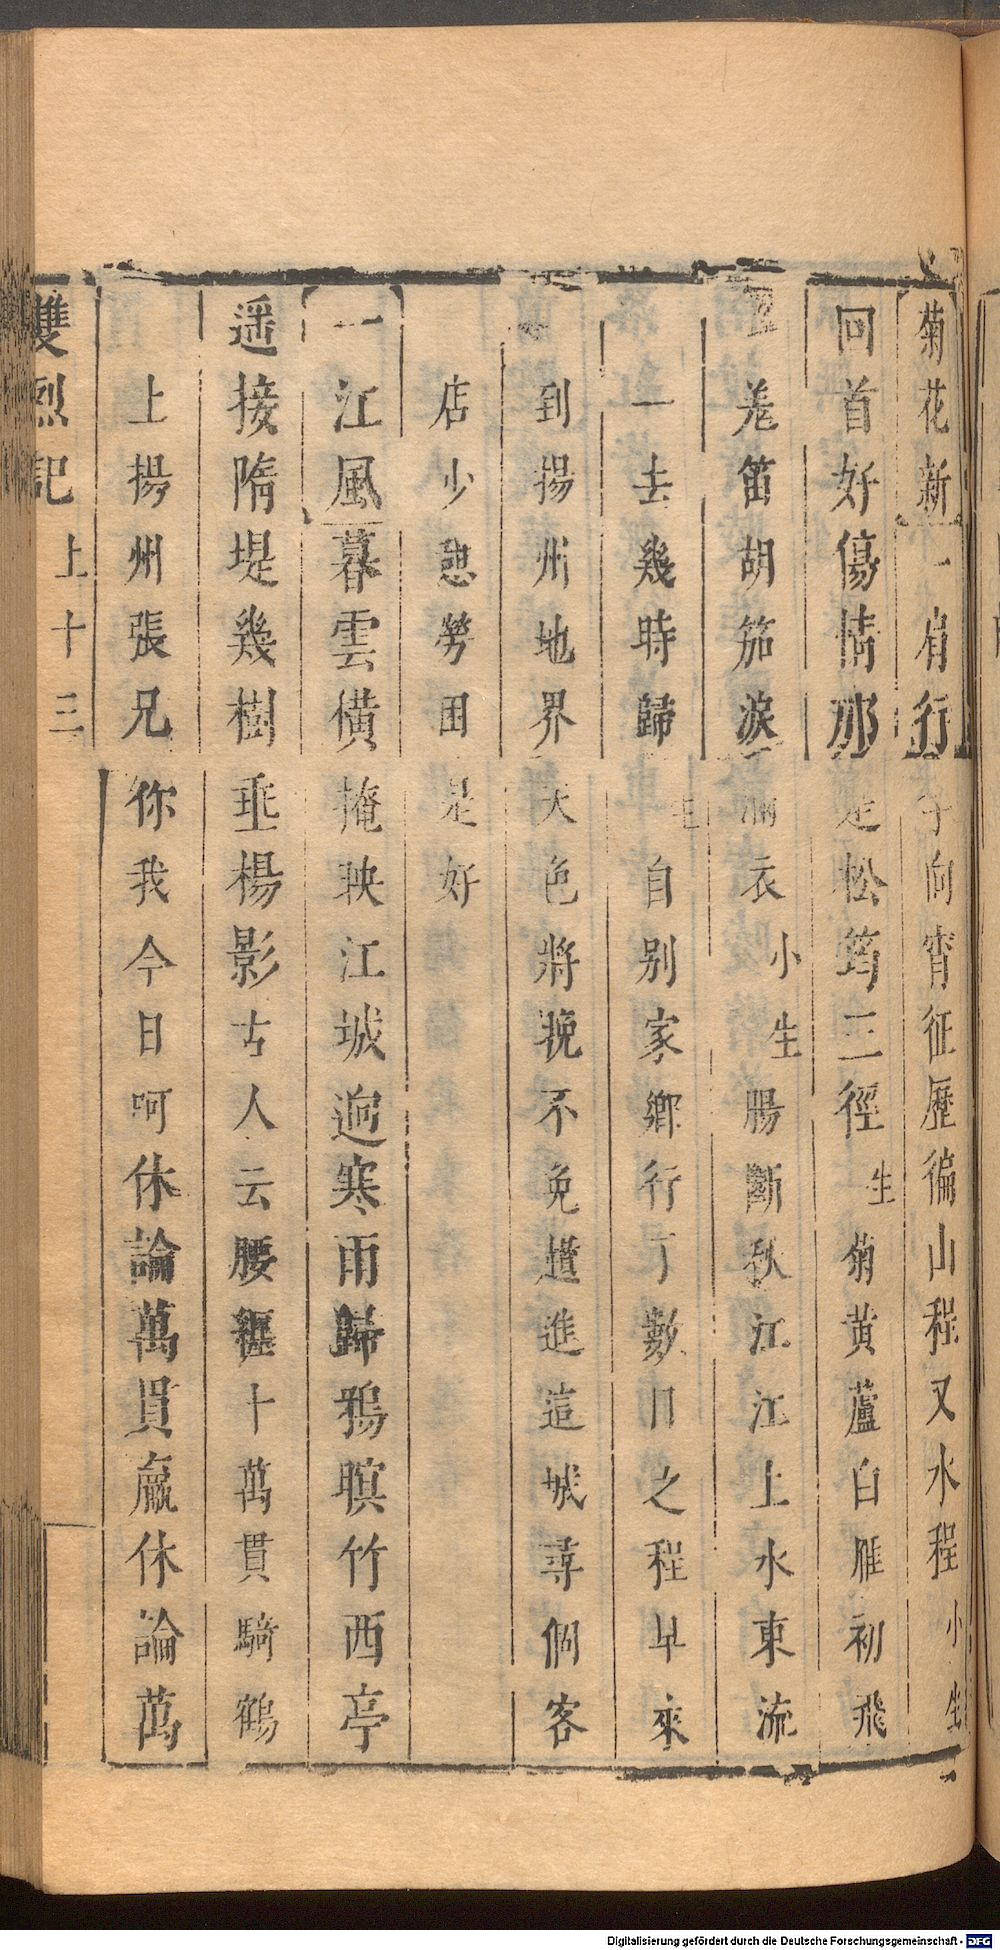 菊花新一肩行李向宵征歷徧山程又水程小生
回首好傷情那是松筠三徑生菊黃蘆白雁初飛
羌笛胡笳淚滿衣小生腸斷秋江江上水東流
一去幾時歸生自別家鄉行了數日之程早來
到揚州地界天色將挽不免趲進這城尋個客
店少憩勞困是好
一江風暮雲橫掩映江城逈寒雨歸鴉暝竹西亭
遥接隋堤幾樹垂楊影古人云腰纒十萬貫騎鶴
上揚州張兄你我今日呵休論萬貫贏休論萬
雙烈記 上十三
Digitalisierung gefördert durch die Deutsche Forschungsgemeinschaft - DFG